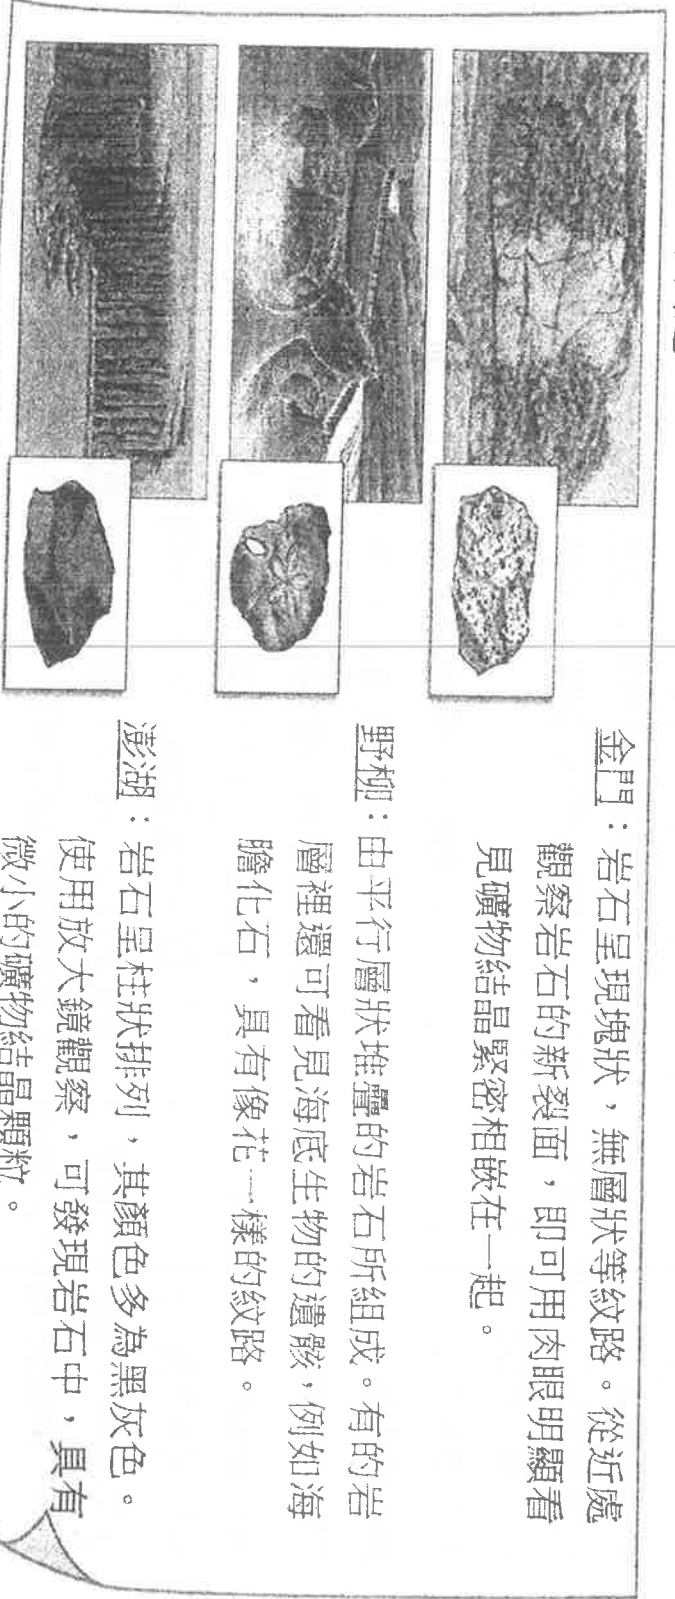 金門：岩石呈現塊狀，無層狀等紋路。從近處
觀察岩石的新裂面，即可用肉眼明顯看
見礦物結晶緊密相嵌在一起。
野柳：由平行層狀堆疊的岩石所組成。有的岩
層裡還可看見海底生物的遺骸，例如海
膽化石，具有像花一樣的紋路。
澎湖：岩石呈柱狀排列，其顏色多為黑灰色。
使用放大鏡觀察，可發現岩石中，具有
微小的礦物結晶顆粒。